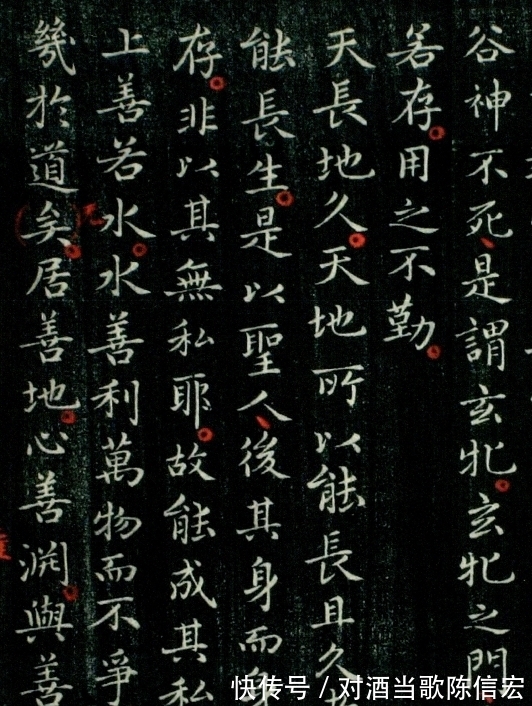 谷神不死是謂玄牝玄牝之門
若存用之不勤
天長地久天地所以能長且久
能長生是以聖人後其身而身
存非以其無私耶故能成其私
上善若水水善利萬物而不爭
幾於道矣居善地心善淵與善
快传号 / 对酒当歌陈信宏